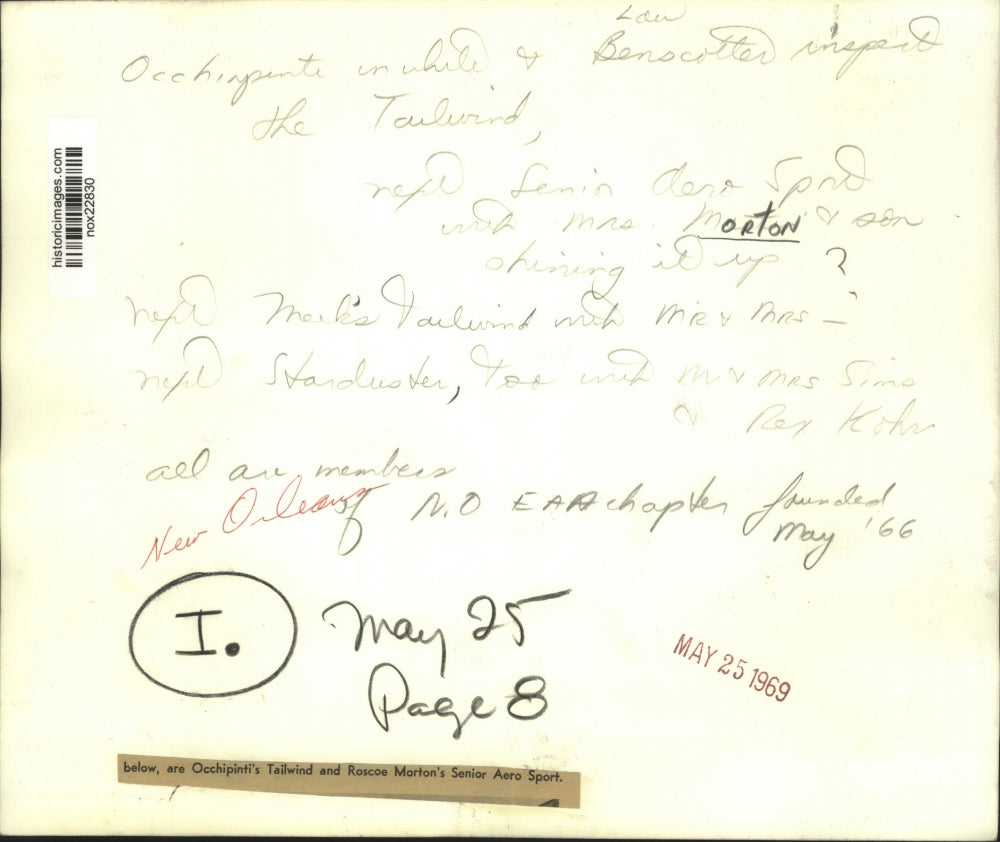 Lou
Occhipinti in white & Benscotter inspect
the Tailwind,
next Senior Aero Sport
with Mrs. MORTON & son
shining it up ?
next Meek's Tailwind with MR & MRS –
next Starduster, Too with Mr & MRS Sims
& Rex Kohn
all are members
New Orleans
of N.O EAA chapter founded
May '66
I. May 25
Page 8
MAY 25 1969
below, are Occhipinti's Tailwind and Roscoe Morton's Senior Aero Sport.
historicimages.com
nox22830